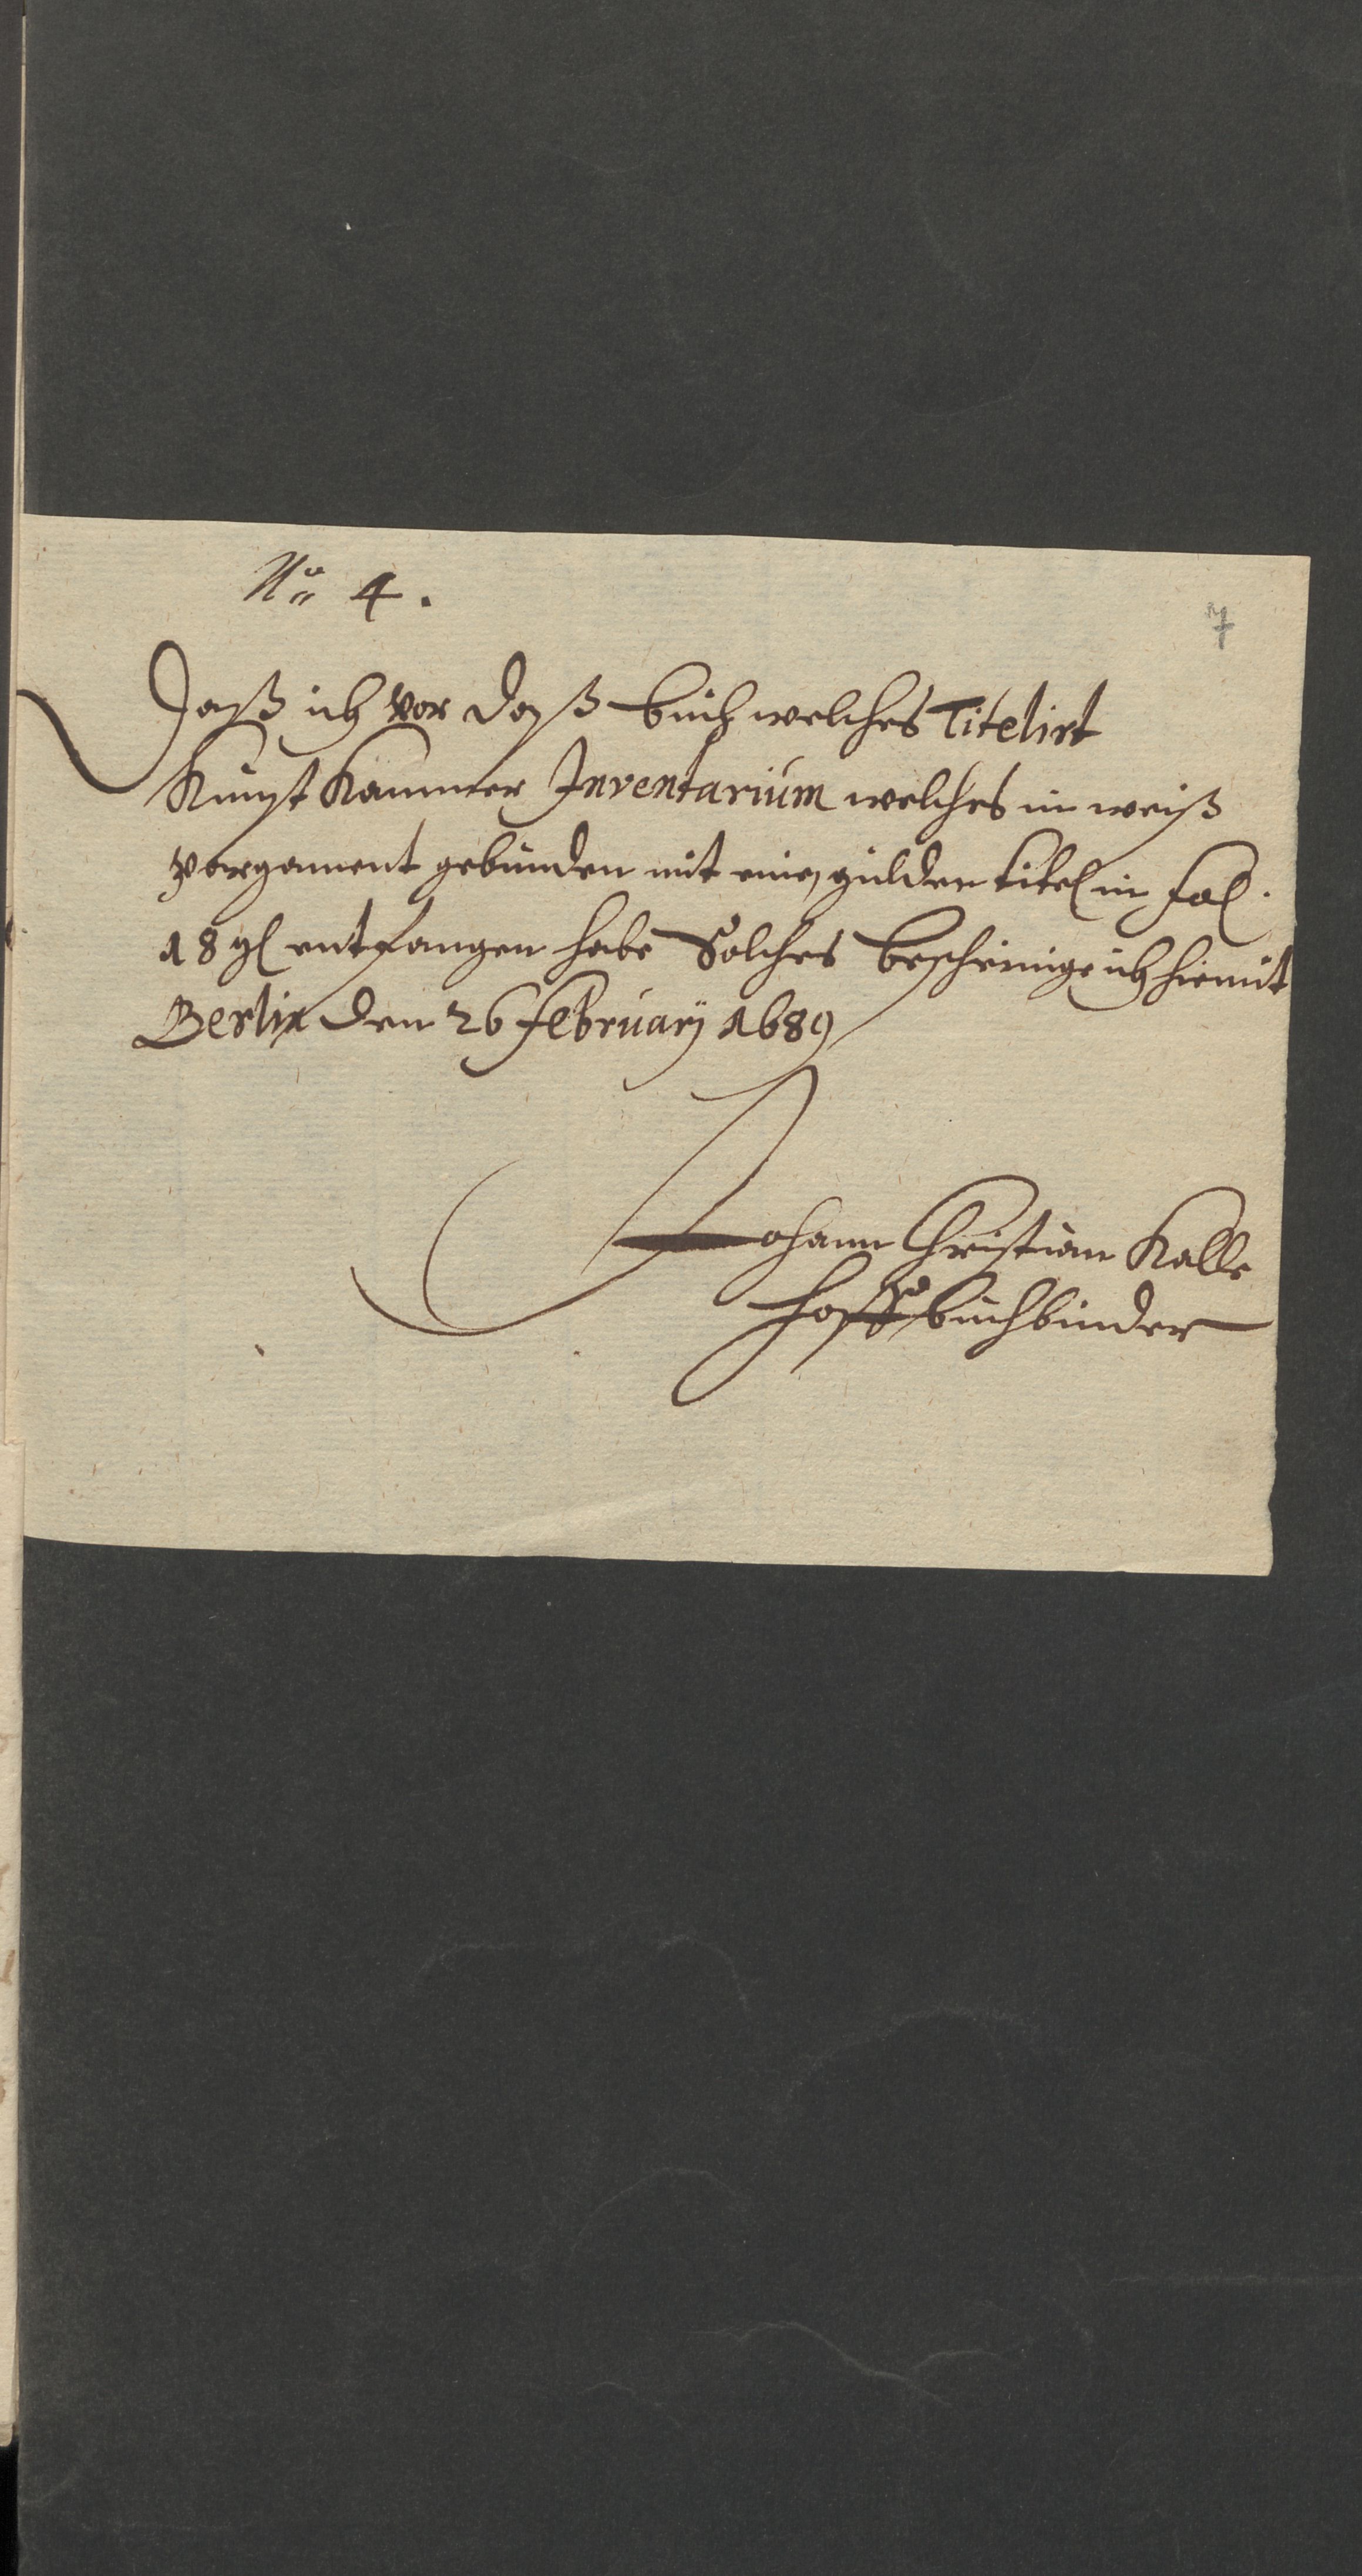 No 4.
7
Daß ich vor daß buch welches Titelirt
Kunst Kammer Inventarium welches in weiß
pergament gebunden mit einen gülden titel in fol.
18 gl entfangen habe Solches bescheinige ich hiemit
Berlin den 26 februarij 1689
Johann Christian Kalle
hoff buchbinder